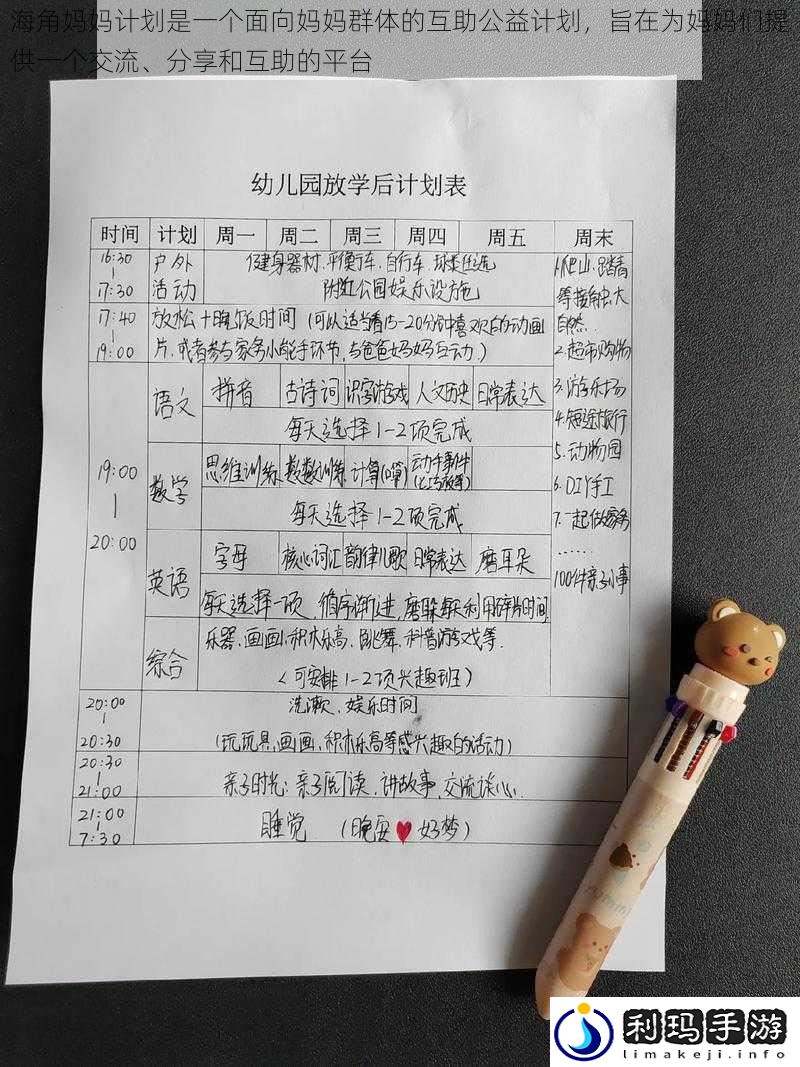 海角妈妈计划是一个面向妈妈群体的互助公益计划，旨在为妈妈们提
供一个交流、分享和互助的平台
幼儿园放学后计划表
时间 计划 周一 周二 周三 周四 周五 周末
16:30 | 17:30 户外活动 健身器材、平衡行车、自行车、球类任选
附近公园娱乐设施
17:40 | 19:00 放松+晚饭时间（可以适当看15-20分钟喜欢的动画
片,或者参与家务小能手环节,与爸爸妈妈互动.）
19:00 | 20:00
语文 拼音 古诗词 识字游戏 人文历史 日常表达
每天选择1-2项完成
数学 思维训练 数数训练 计算(口算)
每天选择1-2项完成
英语 字母 核心词汇 韵律儿歌 日常表达 磨耳朵
每天选择一项,循序渐进,磨蹂每天利用碎片时间
综合 乐器、画画、积木乐高、跳舞、科普游戏等.
<可安排1-2项兴趣班>
1.爬山、踏青
等接触大
自然...
2.超市购物
3.游乐场
4.短途旅行
5.动物园
6.DIY手工
7.一起做家务
......
100件亲子小事
20:00 | 20:30 洗漱、娱乐时间
(玩玩具,画画,积木乐高等感兴趣的活动)
20:30 | 21:00 亲子时光:亲子阅读、讲故事,交流谈心.
21:00 | 7:30 睡觉 (晚安♥好梦)
rummi
利玛手游
limakeji.info